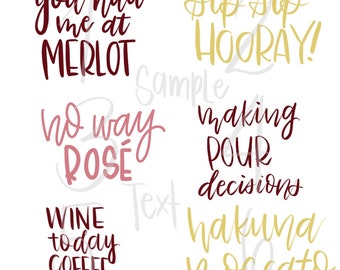 you had
me at
MERLOT
sip sip
HOORAY!
no way
ROSÉ
making
POUR
decisions
WINE
today
COFFEE
hakuna
moscato
Sample
Text
1
2
3
4
5
6